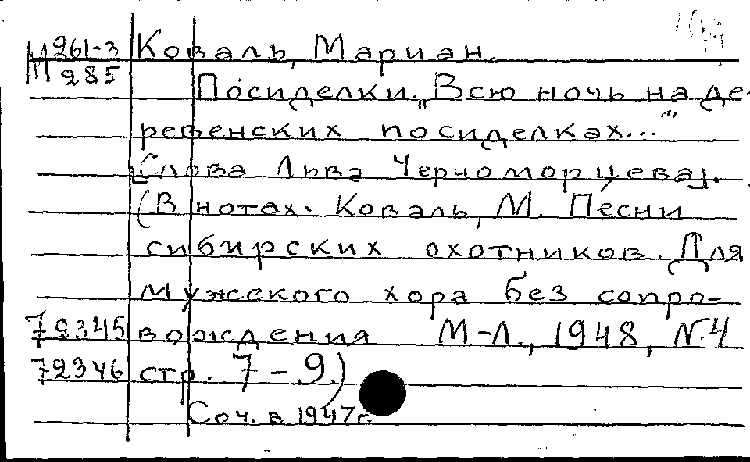 М 261-3 Коваль, Мариан.
285 Посиделки. „Всю ночь на де-
ревенских посиделках..."
[Слова Льва Черноморцева].
(В нотах. Коваль, М. Песни
сибирских охотников. Для
мужского хора без сопро-
79345 вождения М-Л., 1948, №4
79346 стр. 7-9.)
Соч. в 1947 г.